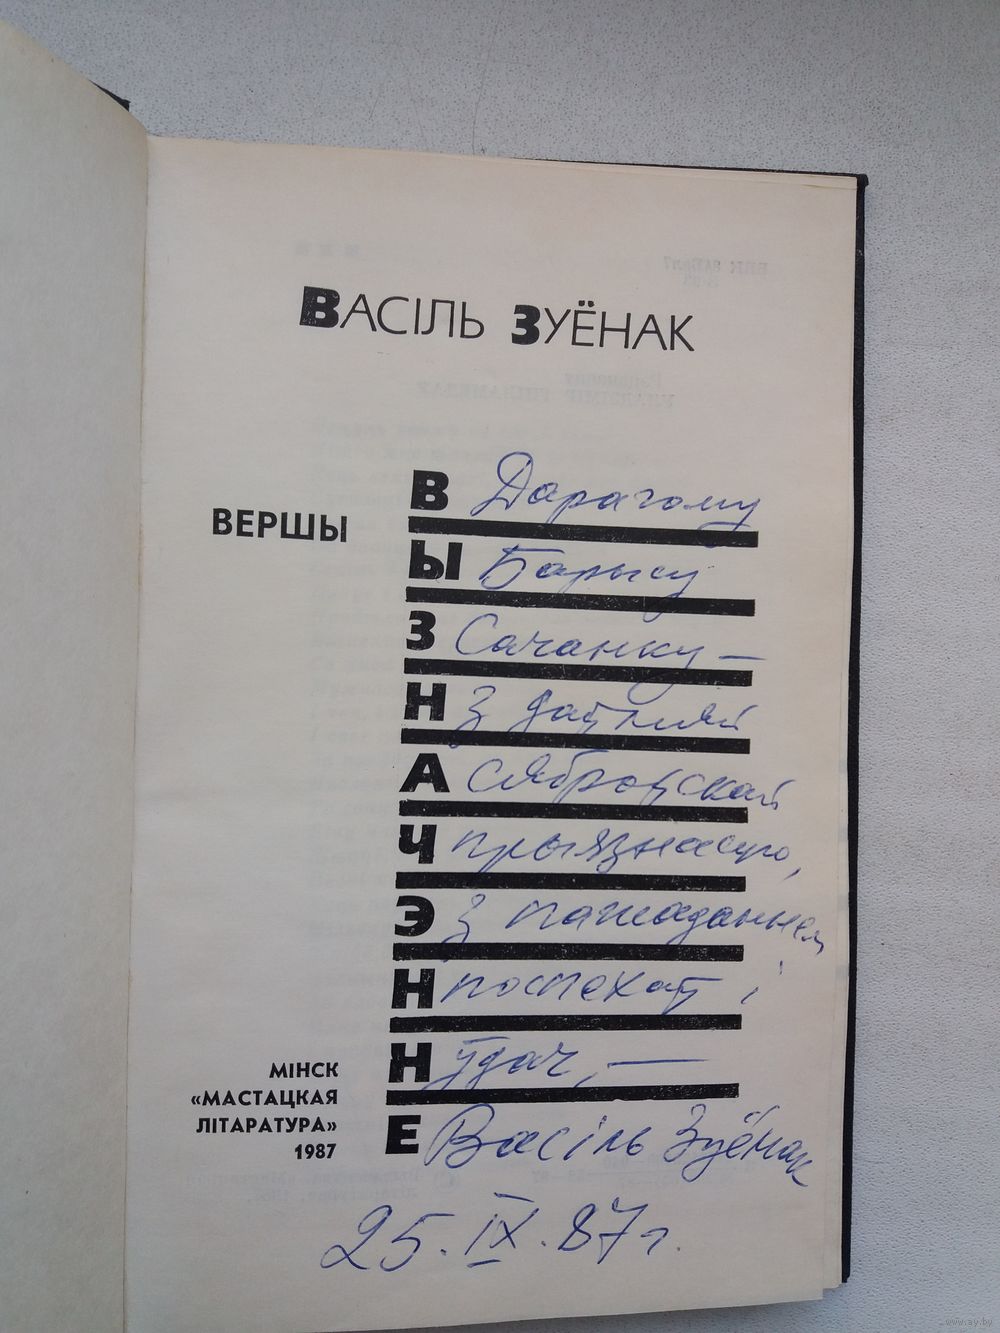 ВАСІЛЬ ЗУЁНАК
ВЕРШЫ
ВЫЗНАЧЭННЕ
Дарагому
Барысу
Сачанку —
з даўняй
сяброўскай
прыязнасцю,
з пажаданнем
поспехаў і
ўдач, —
Васіль Зуёнак
25. IX. 87 г.
МІНСК
«МАСТАЦКАЯ
ЛІТАРАТУРА»
1987
www.ay.by